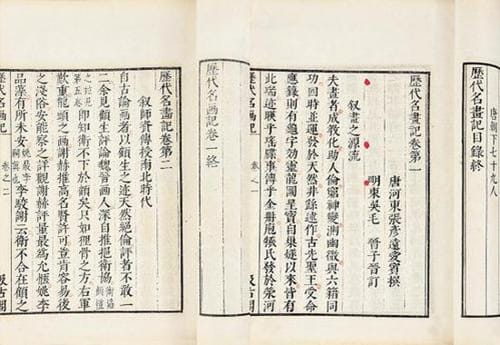 唐朝下七十九人
歷代名畫記目錄終
歷代名畫記卷第一
唐河東張彥遠愛賓撰
明東吳毛 晉子晉訂
叙畫之源流
夫畫者成教化助人倫窮神變測幽微與六籍同
功四時並運發於天然非繇述作古先聖王受命
應籙則有龜字効靈龍圖呈寶自巢燧以來皆有
此瑞迹暎乎瑤牒事傳乎金冊庖犧氏發於滎河
歷代名畫記 卷之一
歷代名畫記卷一終
歷代名畫記卷第二
叙師資傳授南北時代
自古論畫者以顧生之迹天然絕倫評者不敢一
二余見顧生評論魏晉畫人深自推挹衛協
即知衛不下於顧矣只如狸骨之方右軍
歎重龍頭之畫謝赫推高名賢許可豈肯容易後
之淺俗安能察之詳觀謝赫評量最為允愜姚李
品藻有所未安 李駿謝云衛不合在顧之
歷代名畫記 卷之二 汲古閣